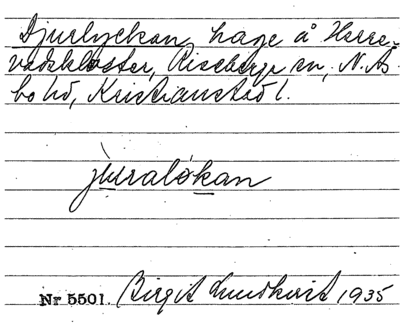 Djurlyckan, hage å Herre-
vadskloster, Riseberga sn, N. Ås-
bo hd, Kristianstad l.
juralókan
Nr 5501. Birgit Lundkvist 1935